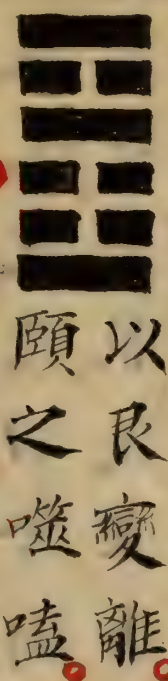 以艮變離
頤之噬嗑